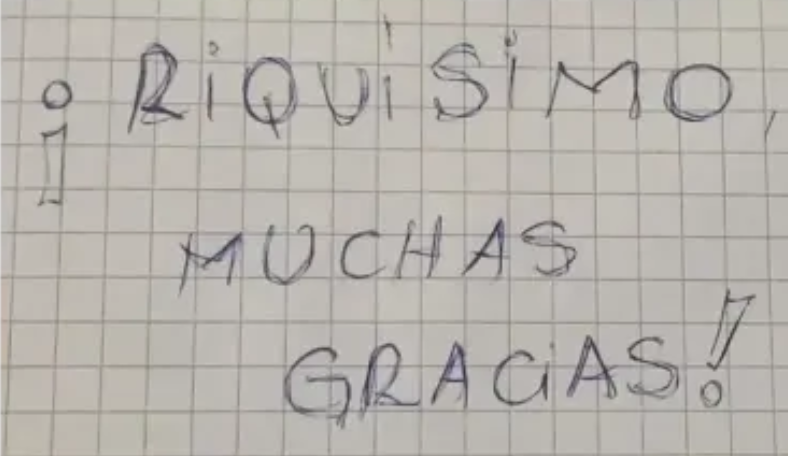 ¡RiQUÍSiMO,
MUCHAS
GRACiAS!